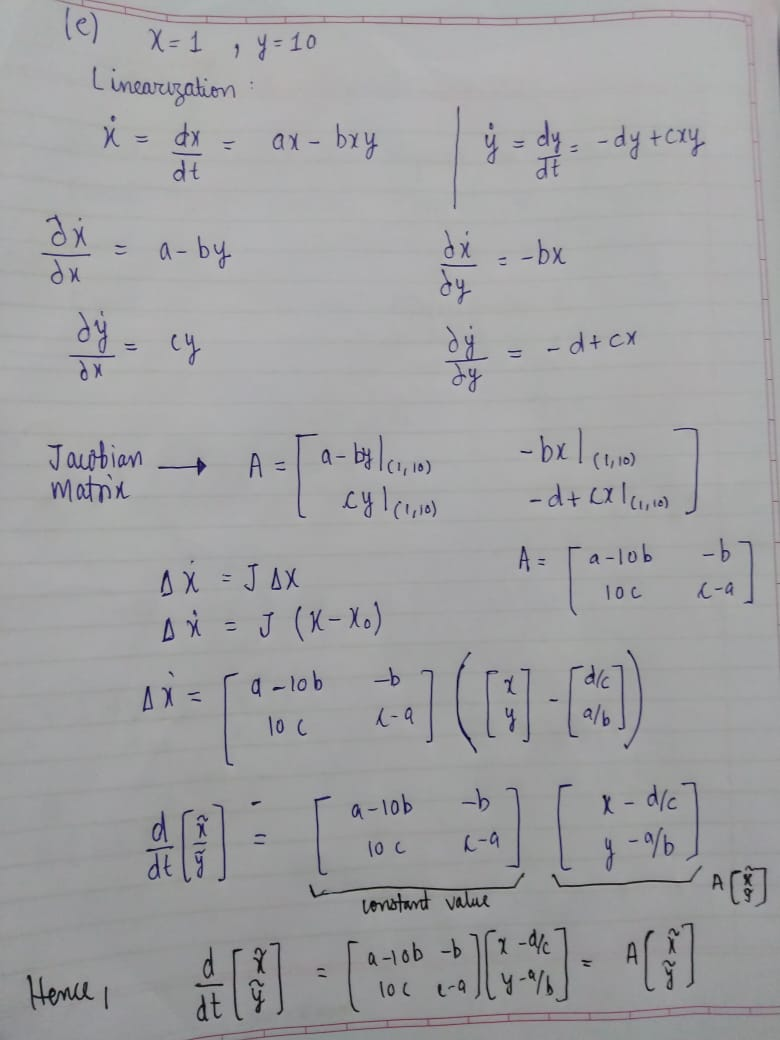 (c) x = 1 , y = 10
Linearization :
ẋ = dx/dt = ax - bxy | ẏ = dy/dt = -dy + cxy
∂ẋ/∂x = a - by ∂ẋ/∂y = -bx
∂ẏ/∂x = cy ∂ẏ/∂y = -d + cx
Jacobian Matrix → A = [ a - by|(1,10) -bx|(1,10) ; cy|(1,10) -d + cx|(1,10) ]
A = [ a-10b -b ; 10c c-a ]
Δẋ = J Δx
Δẋ = J (x - x₀)
Δẋ = [ a-10b -b ; 10c c-a ] ( [ x ; y ] - [ d/c ; a/b ] )
d/dt [ x̃ ; ỹ ] = [ a-10b -b ; 10c c-a ] [ x - d/c ; y - a/b ]
constant value A [ x̃ ; ỹ ]
Hence, d/dt [ x̃ ; ỹ ] = [ a-10b -b ; 10c c-a ] [ x - d/c ; y - a/b ] = A [ x̃ ; ỹ ]